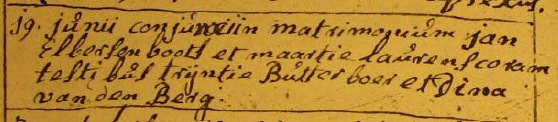 19. junii conjuncxi in matrimonium jan
Elbersen boots et maartie laurens coram
testibus trijntie Butterboer et Dina
van den Berg.